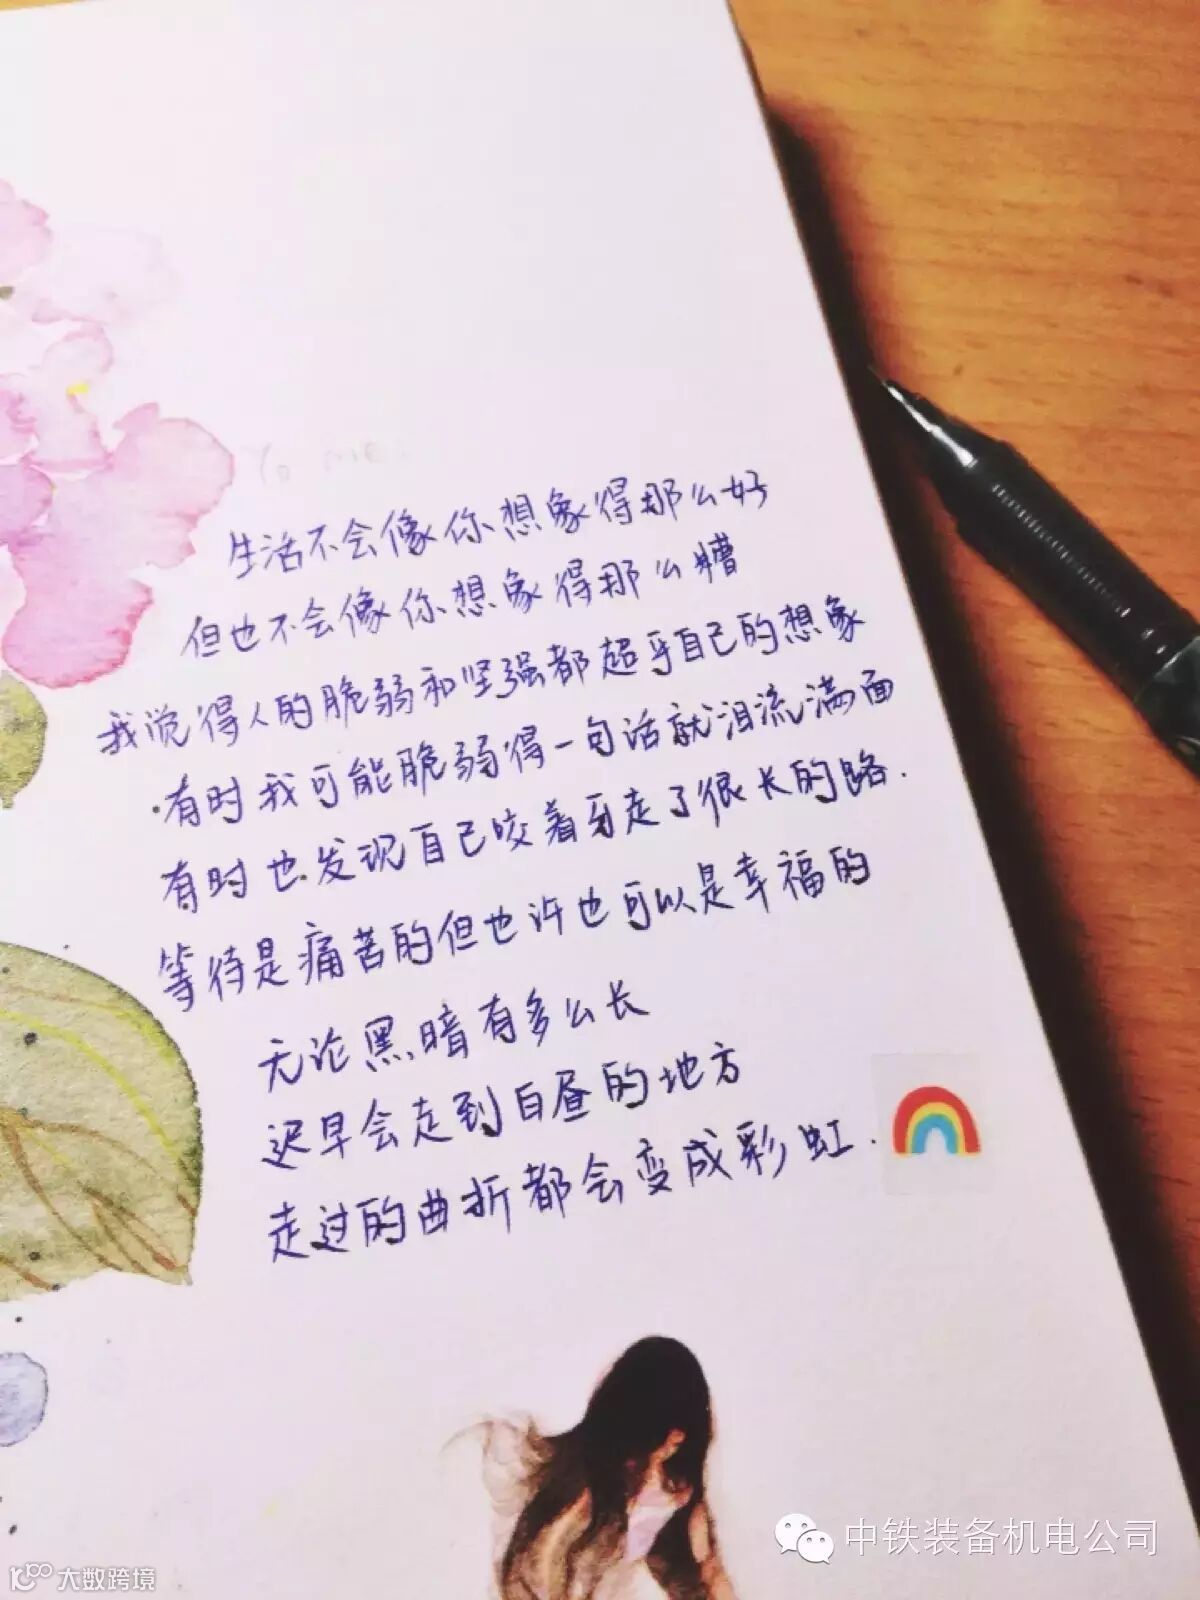 生活不会像你想象得那么好
但也不会像你想象得那么糟
我觉得人的脆弱和坚强都超乎自己的想象
有时我可能脆弱得一句话就泪流满面
有时也发现自己咬着牙走了很长的路.
等待是痛苦的但也许也可以是幸福的
无论黑暗有多么长
迟早会走到白昼的地方
走过的曲折都会变成彩虹.
中铁装备机电公司
大数跨境